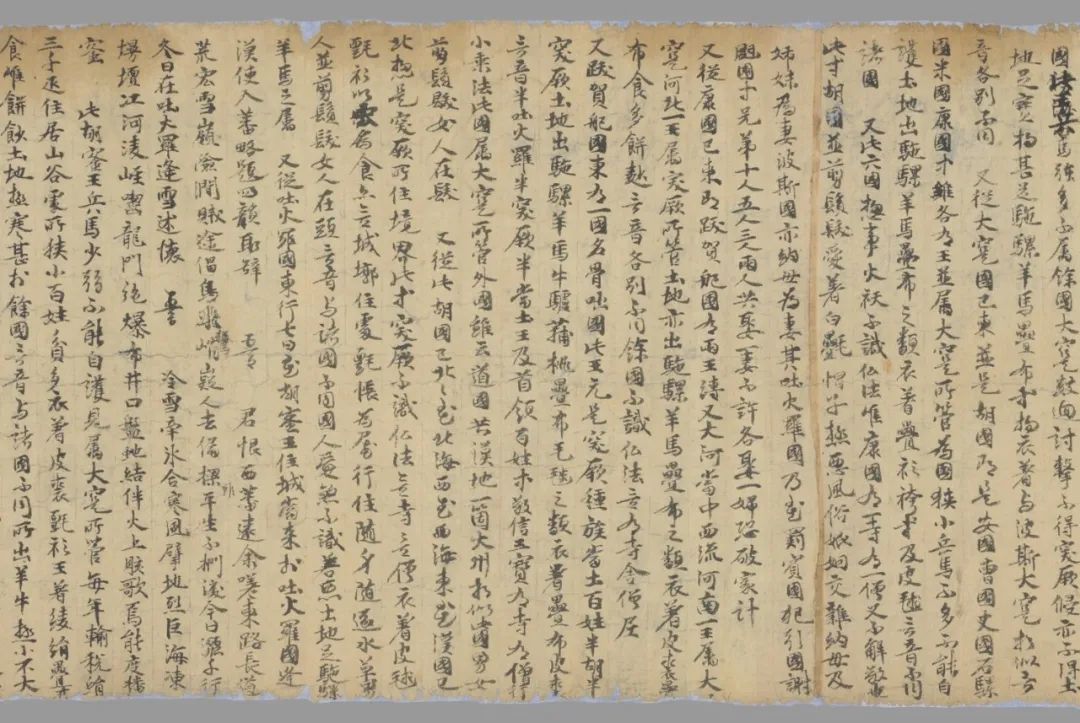 國馬強多不屬餘國大寔數迴討擊不得突厥侵亦不得土
地足寶物甚足駞騾羊馬疊布等物衣著与波斯大寔相似言
音各別不同　又從大寔國已東並是胡國即是安國曹國史國石騾
國米國康國中雖各有王並屬大寔所管為國狹小兵馬不多不能自
護土地出駞騾羊馬疊布之類衣著疊衫袴等及皮毬言音不同
諸國　又此六國惣事火祆不識仏法唯康國有一寺有一僧又不解敬也
此等胡國並剪鬢髮愛著白氎帽子極惡風俗婚姻交雜納母及
姊妹為妻波斯國亦納母為妻其吐火羅國乃至罽賓國犯引國謝
颶國等兄弟十人五人三人兩人共娶一妻不許各娶一婦恐破家計
又從康國已東即跋賀那國有兩王縛又大河當中西流河南一王屬大
寔河北一王屬突厥所管土地亦出駞騾羊馬疊布之類衣著皮裘疊
布食多餅麨言音各別不同餘國不識仏法無有寺舍僧尼
又跋賀那國東有一國名骨咄國此王元是突厥種族當土百姓半胡半
突厥土地出駞騾羊馬牛驢蒲桃疊布毛毯之類衣著疊布皮裘
言音半吐火羅半突厥半當土王及首領百姓等敬信三寶有寺有僧行
小乘法此國屬大寔所管外國雖云道國共漢地一箇大州相似此國男人
剪鬢髮女人在髮　又從此胡國已北北至北海西至西海東至漢國已
北惣是突厥所住境界此等突厥不識仏法無寺無僧衣著皮毬
氈衫以虫為食亦無城墎住處氈帳為屋行住隨身隨逐水草男
人並剪鬢髮女人在頭言音与諸國不同國人愛煞不識善惡土地足駞騾
羊馬之屬　又從吐火羅國東行七日至胡蜜王住城當來於吐火羅國逢
漢使入蕃略題四韻取辭　五言　君恨西蕃遠余嗟東路長道
荒宏雪嶺險澗賊途倡鳥飛驚峭嶷人去偏樑難平生不捫淚今日灑千行
冬日在吐火羅逢雪述懷　五言　冷雪牽氷合寒風擘地烈巨海凍
墁壇江河凌崖囓龍門絕爆布井口盤虵結伴火上胲歌焉能度播
蜜　此胡蜜王兵馬少弱不能自護見屬大寔所管每年輸稅絹
三千疋住居山谷處所狹小百姓貧多衣著皮裘氈衫王著綾絹疊布
食唯餅麨土地極寒甚於餘國言音与諸國不同所出羊牛極小不大